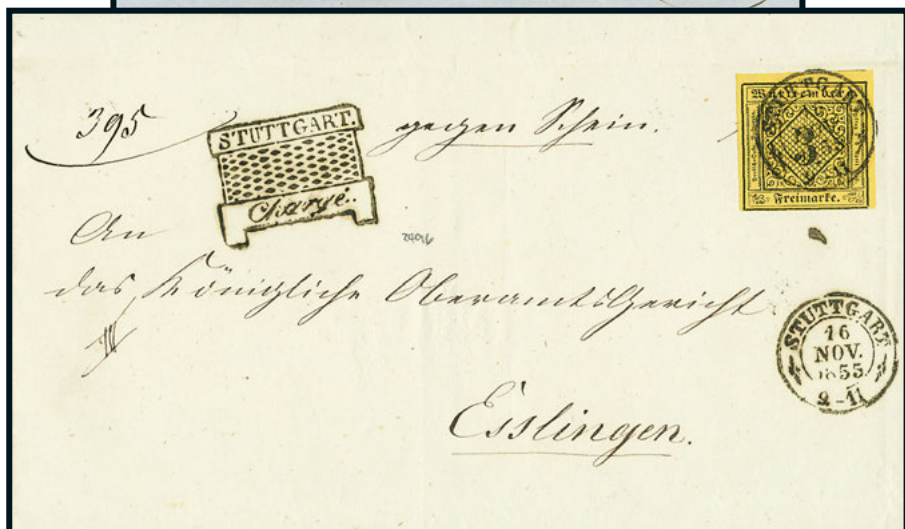 395
STUTTGART.
Chargé.
gegen Schein.
Württemberg
3
Freimarke.
STUTTGART
An
das Königliche Oberamtsgericht
Esslingen.
STUTTGART
16
NOV.
1855
9-11